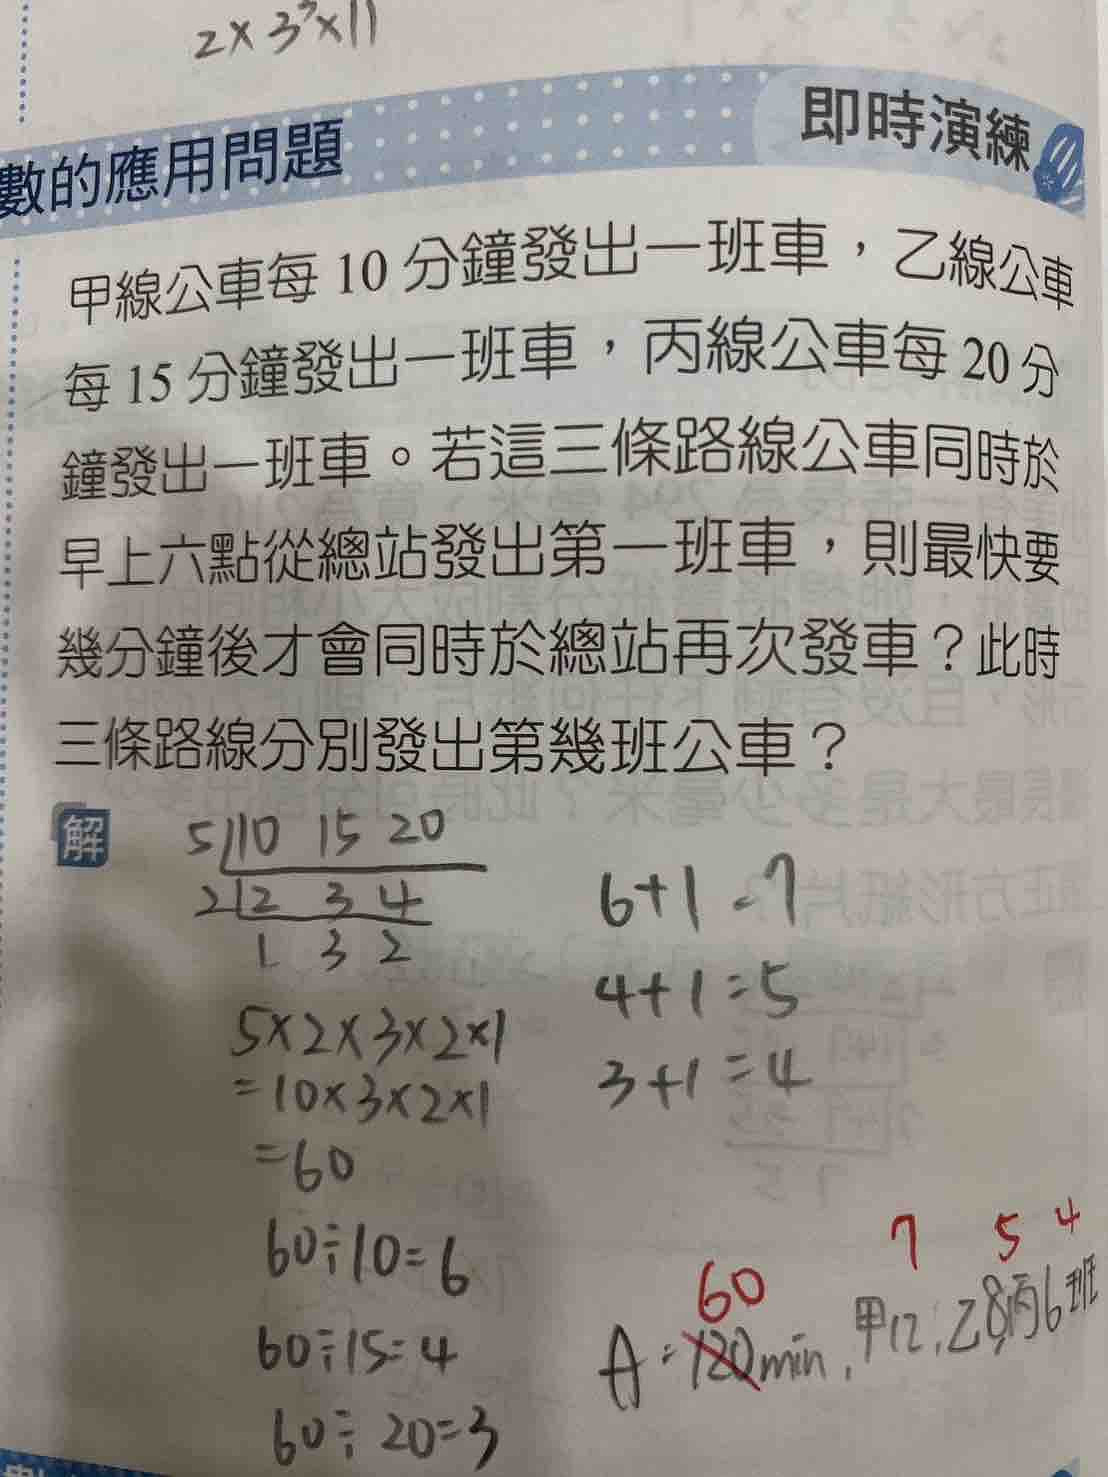 2×3³×11
數的應用問題
即時演練
甲線公車每 10 分鐘發出一班車，乙線公車
每 15 分鐘發出一班車，丙線公車每 20 分
鐘發出一班車。若這三條路線公車同時於
早上六點從總站發出第一班車，則最快要
幾分鐘後才會同時於總站再次發車？此時
三條路線分別發出第幾班公車？
解
5 10 15 20
2 2 3 4
1 3 2
5×2×3×2×1
=10×3×2×1
=60
60÷10=6
60÷15=4
60÷20=3
6+1=7
4+1=5
3+1=4
60 7 5 4
A：120min，甲12，乙8，丙6班